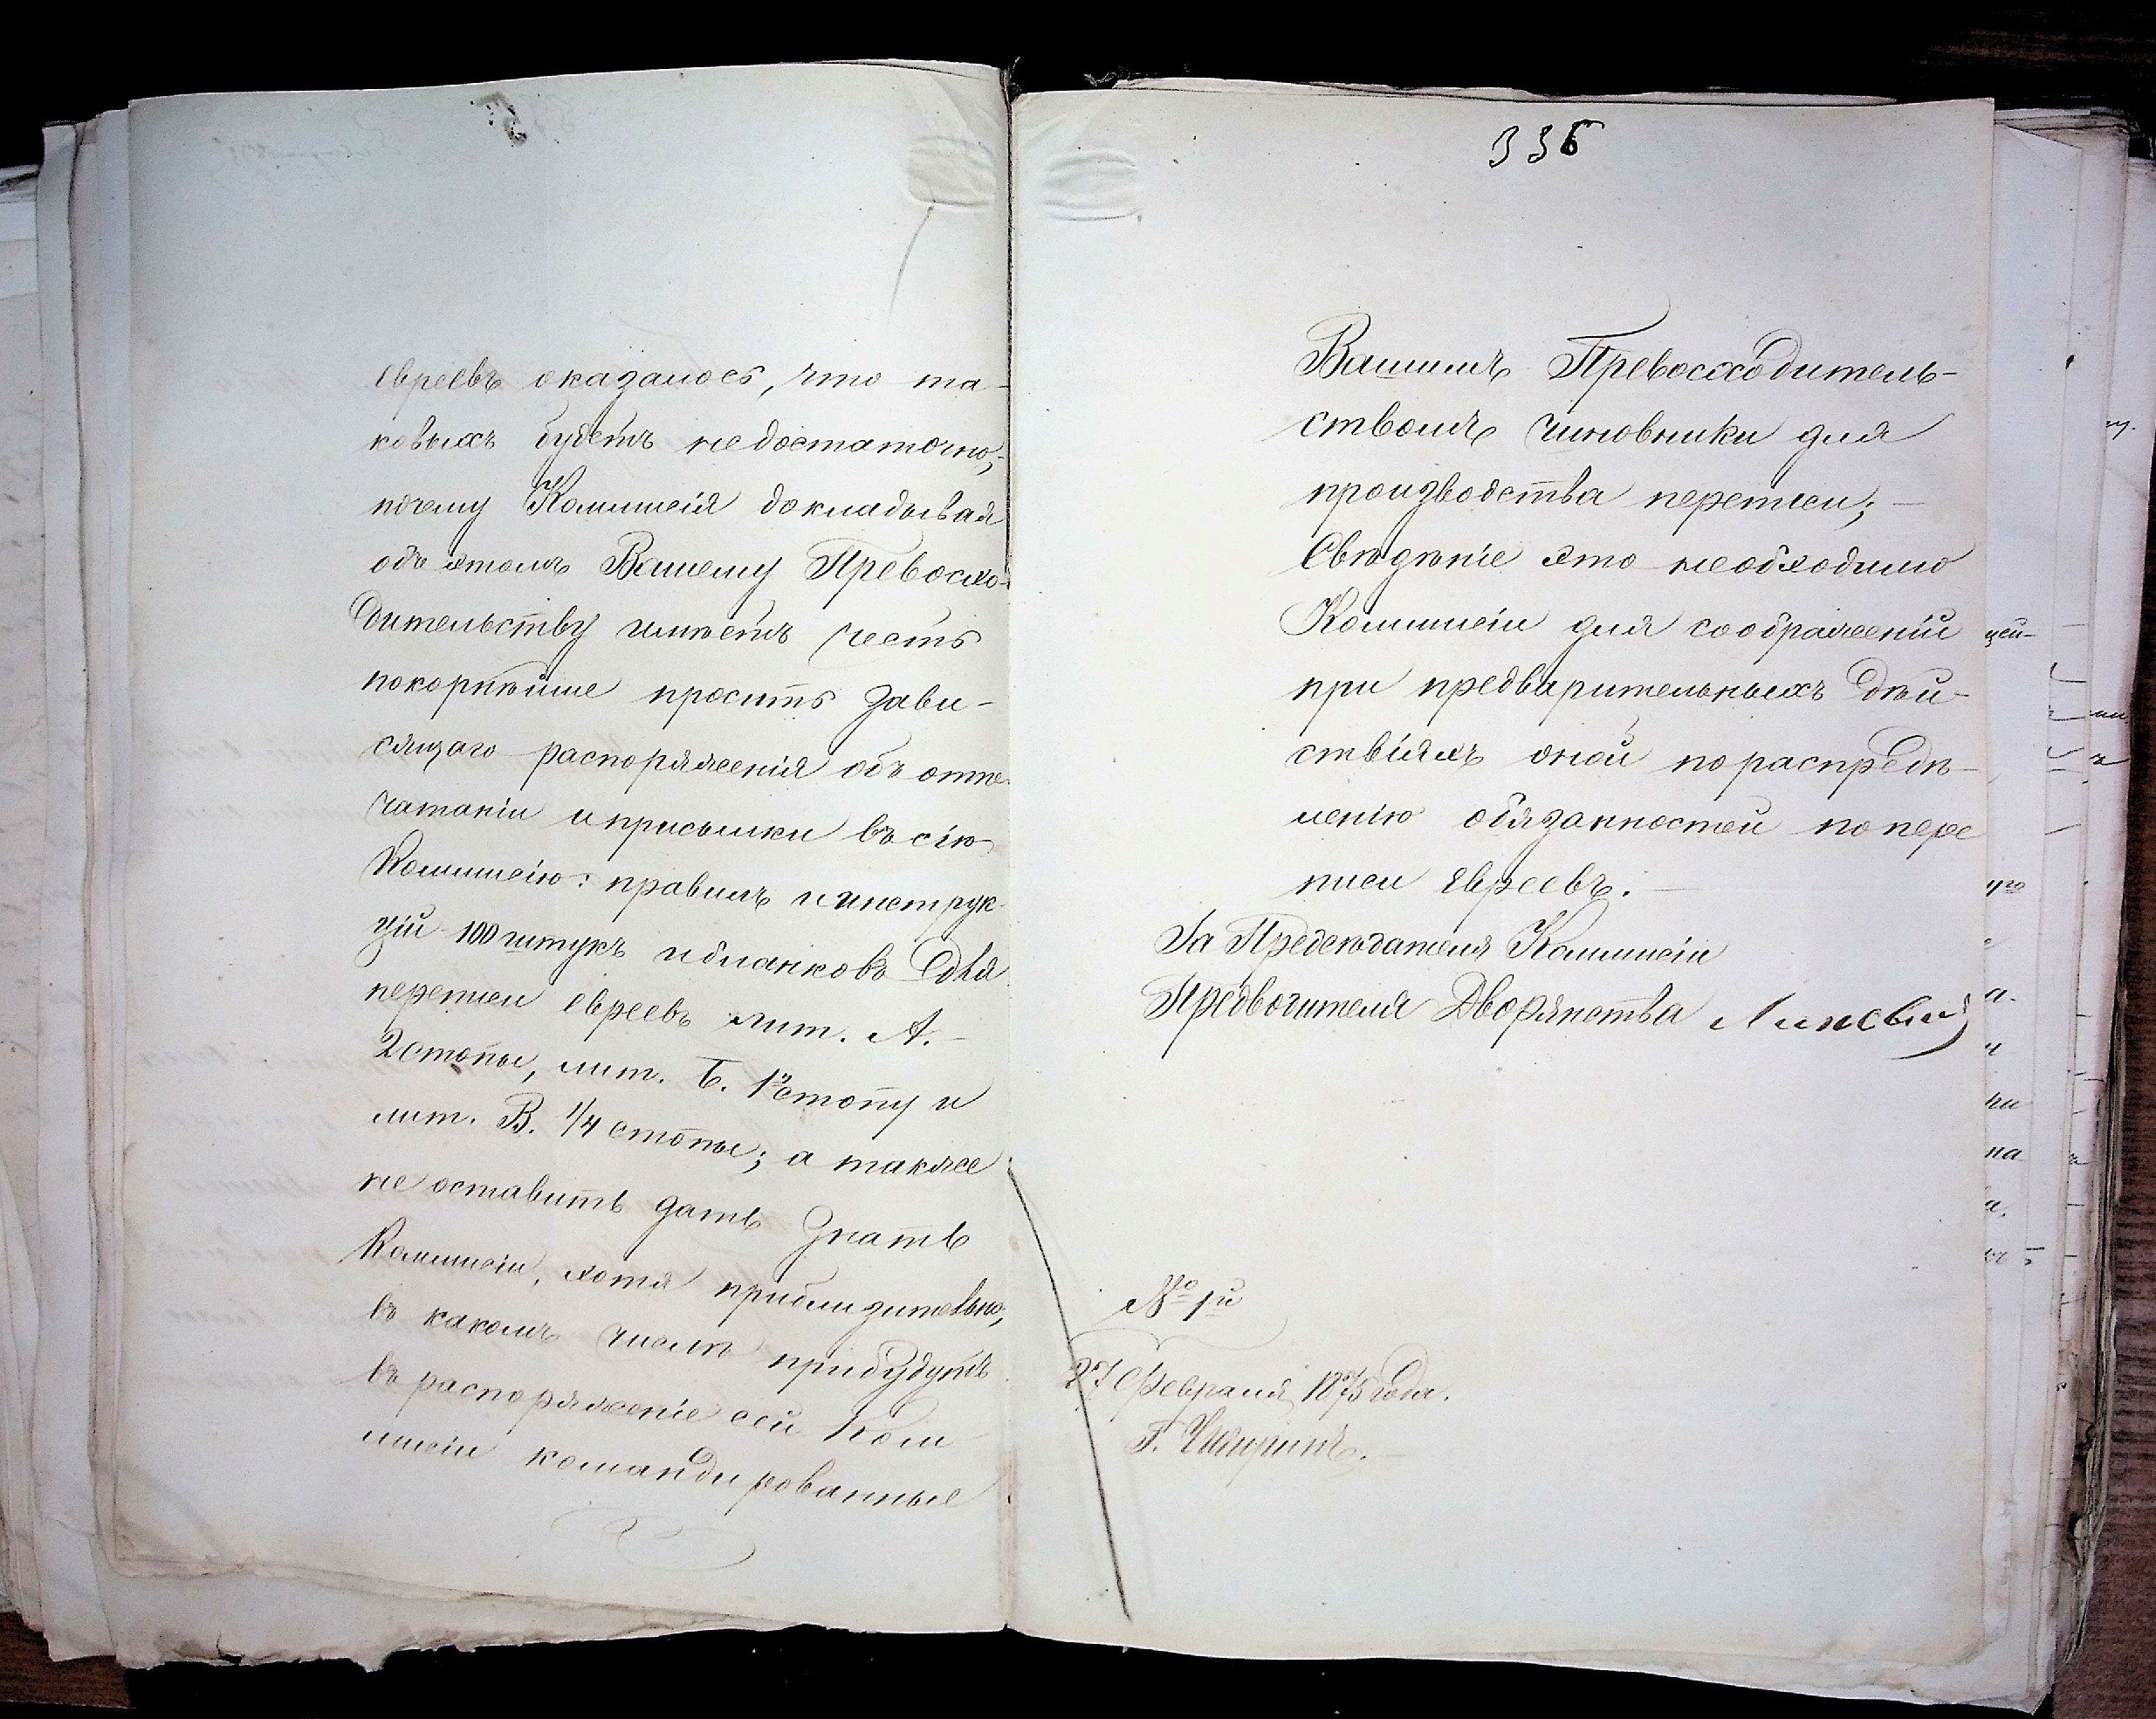 евреевъ оказалось, что та-
ковыхъ будетъ недостаточно,
почему Коммисія докладывая
объ этомъ Вашему Превосхо-
дительству имѣетъ честь
покорнѣйше просить зави-
сящаго распоряженія объ отпе-
чатаніи и присылки въ сію
Коммисію: правилъ и инструк-
цій 100 штукъ и бланковъ для
переписи евреевъ лит. А.
2 стопы, лит. Б. 1 стопу и
лит. В. 1/4 стопы; а также
не оставить дать знать
Коммисіи, хотя приблизительно,
въ какомъ числѣ прибудутъ
въ распоряженіе сей Ком-
мисіи командированные
336
Вашимъ Превосходитель-
ствомъ чиновники для
производства переписи; —
Свѣдѣніе это необходимо
Коммисіи для соображеній
при предварительныхъ дѣй-
ствіяхъ оной по распредѣ-
ленію обязанностей по пере
писи евреевъ. —
За Предсѣдателя Коммисіи
Предводителя Дворянства
№ 1й
27 Февраля 1875 года.
Г. Чигиринъ.